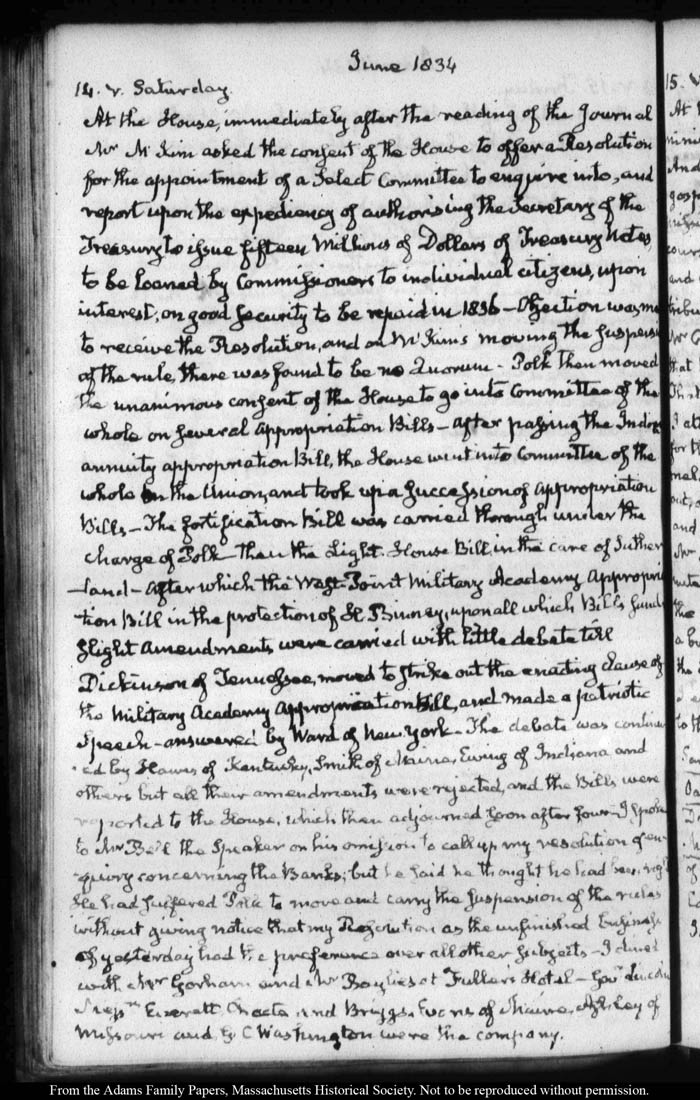 June 1834
14. V. Saturday.
At the House, immediately after the reading of the Journal
Mr McKim asked the consent of the House to offer a Resolution
for the appointment of a Select Committee to enquire into, and
report upon the expediency of authorising the Secretary of the
Treasury to issue fifteen Millions of Dollars of Treasury Notes,
to be loaned by Commissioners to individual citizens, upon
interest, on good security to be repaid in 1836 – Objection was
to receive the Resolution, and on McKim's moving the
of the rule, there was found to be no Quorum – Polk then moved
the unanimous consent of the House to go into Committee of the
whole on several appropriation Bills – After passing the
annuity appropriation Bill, the House went into Committee of the
whole on the Union, and took up a succession of appropriation
Bills – The fortification Bill was carried through under the
charge of Polk – then the Light-House Bill, in the care of Suther
-land – After which the West-Point Military Academy Appropri
-tion Bill in the protection of H. Binney, upon all which Bills
slight amendments were carried with little debate till
Dickinson of Tennessee, moved to strike out the enacting clause of
the Military Academy Appropriation Bill, and made a patriotic
speech – answered by Ward of New-York – The debate was continu
-ed by Hawes of Kentucky, Smith of Maine, Ewing of Indiana and
others but all their amendments were rejected, and the Bills were
reported to the House, which then adjourned soon after four – I spoke
to Mr Bell the Speaker on his omission to call up my resolution of en-
-quiry concerning the Banks; but he said he thought he had been
He had suffered Polk to move and carry the suspension of the rules
without giving notice that my Resolution as the unfinished business
of yesterday had the preference over all other subjects – I dined
with Mr Gorham and Mr Baylies at Fuller's Hotel – Govr Lincoln
Everett, Choate and Briggs, Evans of Maine, Ashley of
Missouri and G C Washington were the company.
15. V
At
From the Adams Family Papers, Massachusetts Historical Society. Not to be reproduced without permission.